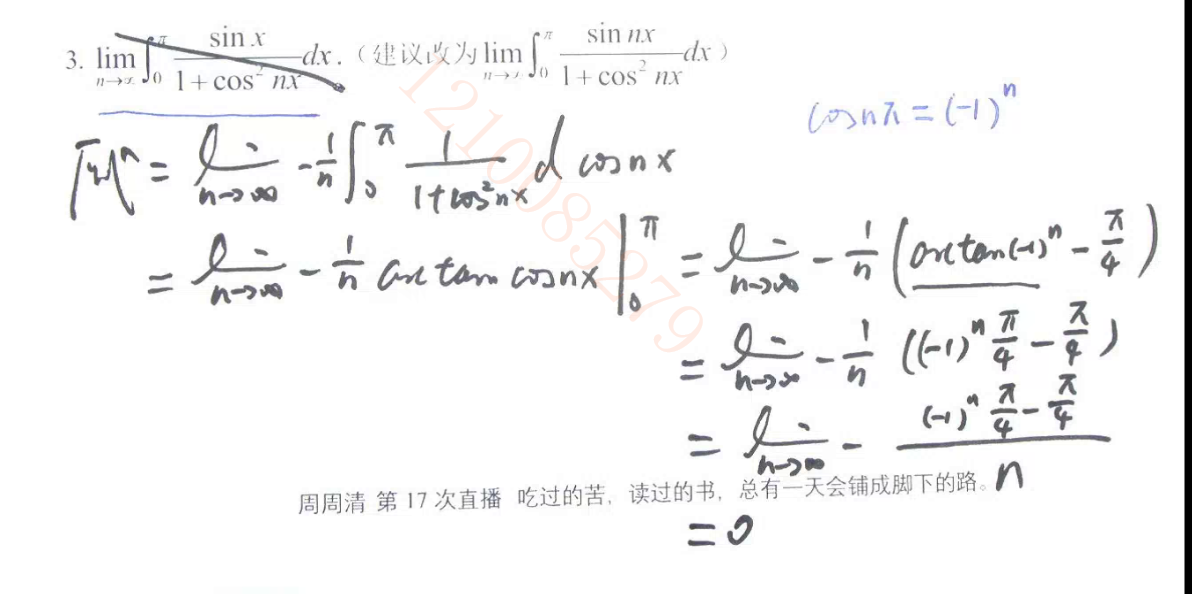 3. lim_{n→∞} ∫_0^π sin x / (1+cos² nx) dx.（建议改为 lim_{n→∞} ∫_0^π sin nx / (1+cos² nx) dx）
cos nπ = (-1)^n
原式 = lim_{n→∞} -1/n ∫_0^π 1/(1+cos² nx) d cos nx
= lim_{n→∞} - 1/n arctan cos nx |_0^π = lim_{n→∞} - 1/n (arctan(-1)^n - π/4)
= lim_{n→∞} - 1/n ((-1)^n π/4 - π/4)
= lim_{n→∞} - ((-1)^n π/4 - π/4) / n
周周清 第 17 次直播 吃过的苦，读过的书，总有一天会铺成脚下的路。
= 0
1210085279